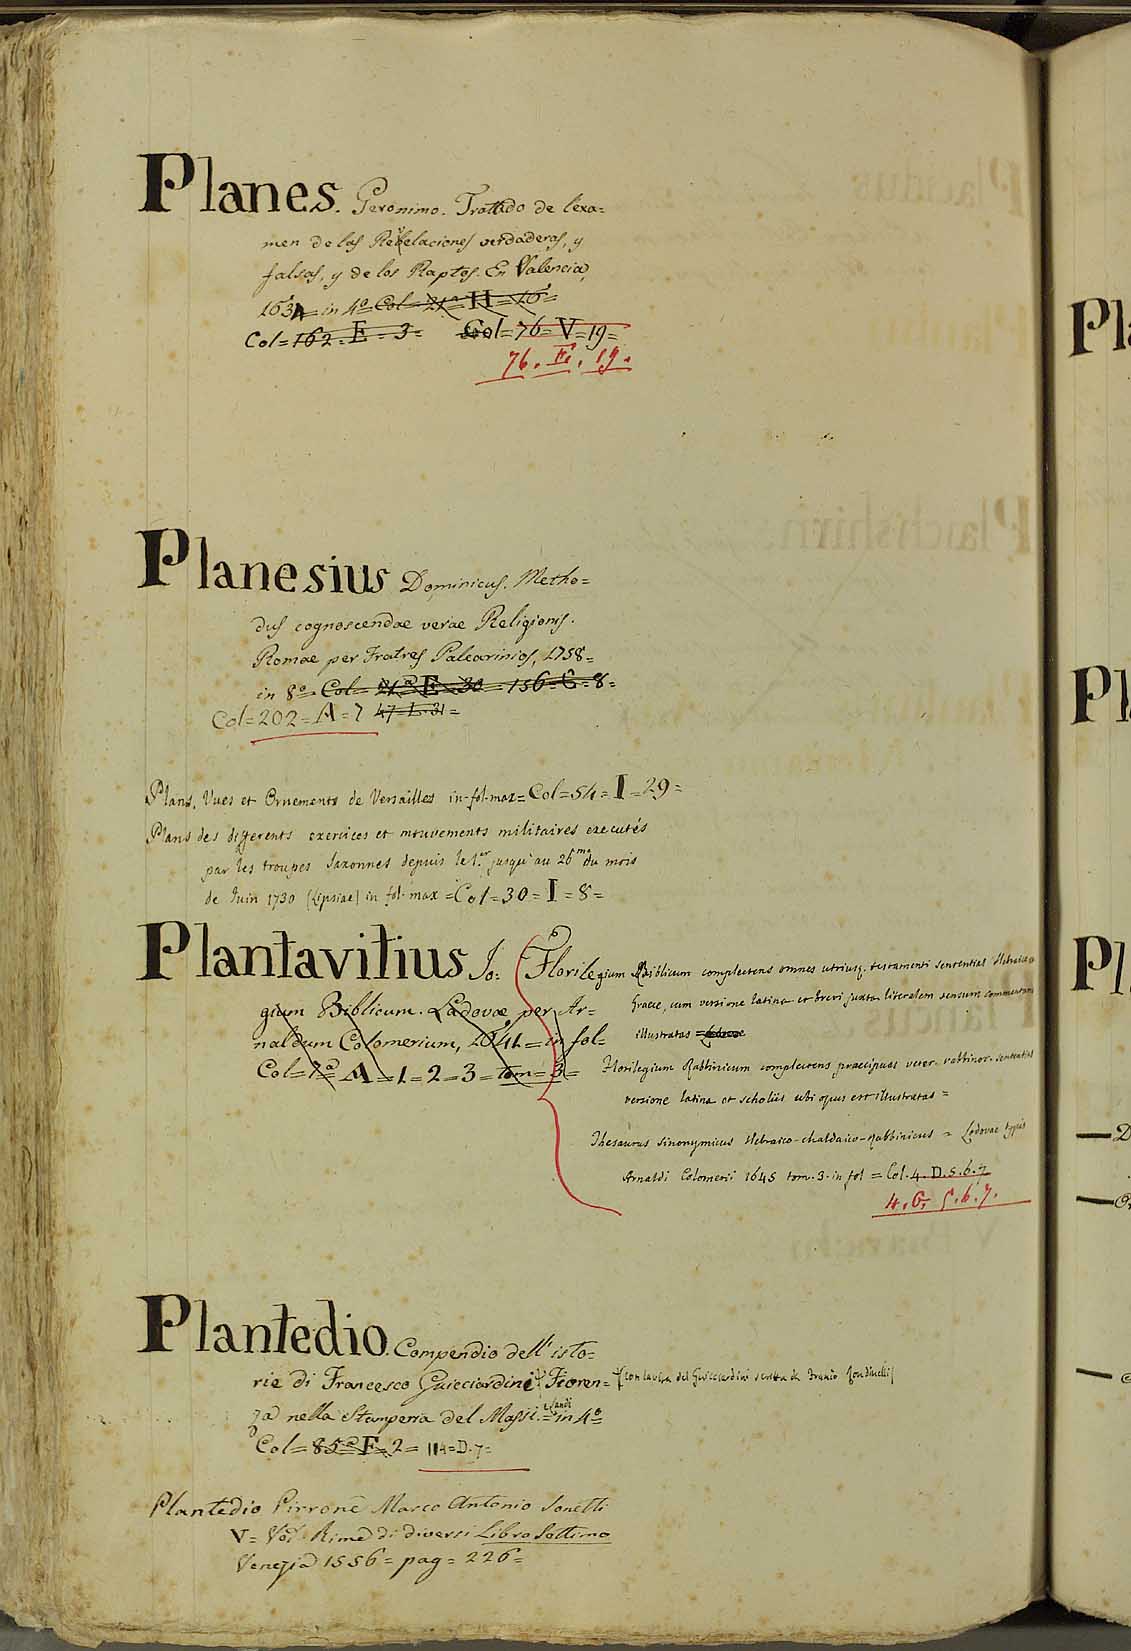 Planes. Geronimo. Trattado de l'exa=
men de las Revelaciones verdaderas, y
falsas, y de los Raptos. En Valencia,
1634 = in 4º Col = 21ª H = 16 =
Col = 162 = E = 3 = Col = 76 = V = 19 =
76. E. 19.
Planesius Dominicus. Metho=
dus cognoscendae verae Religionis.
Romae per Fratres Palearinios, 1758 =
in 8º = Col = 21ª E = 30 = 156 = C = 8 =
Col = 202 = A = 7 47 = L = 31 =
Plans, Vues et Ornements de Versailles in-fol-max = Col = 54 = I = 29 =
Plans des differents exercices et mouvements militaires executés
par les troupes Saxonnes depuis le 1.er jusqu'au 26me du mois
de Juin 1730 (Lipsiae) in fol. max = Col = 30 = I = 8 =
Plantavitius Jo: Florile
gium Biblicum. Lodovae, per Ar=
naldum Colomerium, 1641 = in fol=
Col = 7ª A = 1 = 2 = 3 = tom = 3 =
Florilegium Biblicum complectens omnes utriusq. testamenti sententias Hebraice
Graece, cum versione latina et brevi juxta literalem sensum
illustratas =
Florilegium Rabbinicum complectens praecipuas veter. rabbinor. sententias
versione latina et scholiis ubi opus est illustratas =
Thesaurus sinonymicus Hebraico-chaldaico-Rabbinicus = Lodovae typis
Arnaldi Colomerii 1645 tom. 3. in fol = Col. 4. D. 5. 6. 7
4. G. 5. 6. 7.
Plantedio. Compendio dell'isto=
rie di Francesco Guicciardini Fioren= (con la vita del Guicciardini scritta da Zondinelli)
za nella Stamperia del Massi. e Landi = in 4º =
Col = 85ª F = 2 = 114 = D. 7 =
Plantedio Pirrone Marco Antonio Sonetti
V = Rime di diversi Libro Settimo
Venezia 1556 = pag = 226 =
Pl
Pl
Pl